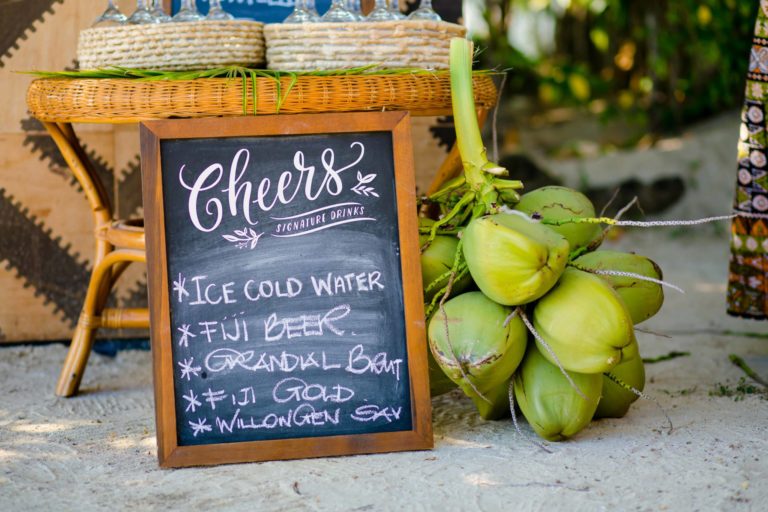 Cheers
SIGNATURE DRINKS
* ICE COLD WATER
* FIJI BEER.
* GRANDIAL BRUT
* FIJI GOLD
* WILLONGEN SAV